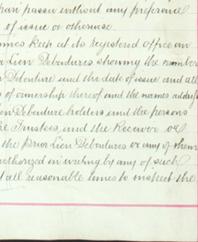 pari passu without any preference
of issue or otherwise.
ames kept at its registered office an
r Lien Debentures showing the number
n Debenture and the date of issue and all
y of ownership thereof and the names address
ien Debenture holders and the persons
he Trustees and the Receiver or
the Prior Lien Debentures or any of them
authorized in writing by any of such
t all reasonable times to inspect the